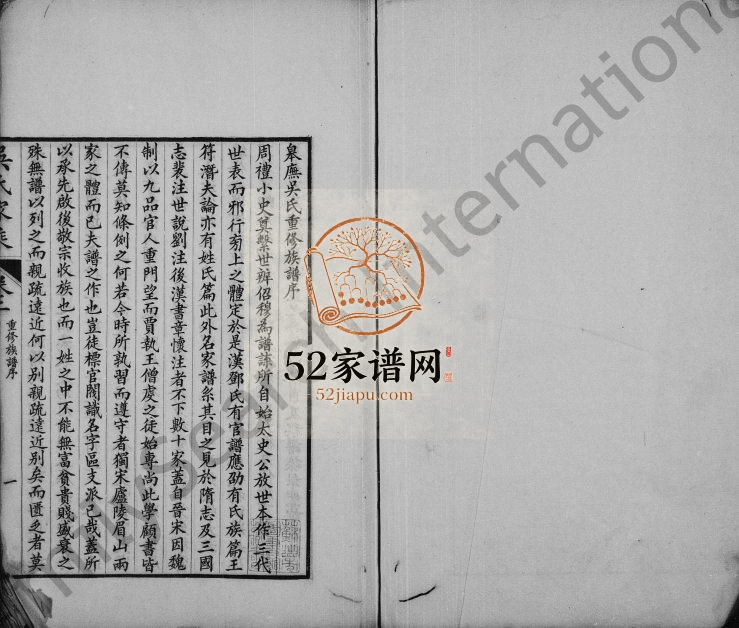 皋廡吳氏重修族譜序
周禮小史奠繫世辨侶穆為譜諜所自始太史公放世本作三代
世表而邪行菊上之體定於是漢鄧氏有官譜應劭有氏族篇王
符潛夫論亦有姓氏篇此外名家譜系其目之見於隋志及三國
志裴注世說劉注後漢書章懷注者不下數十家蓋自晉宋因魏
制以九品官人重門望而賈執王僧虔之徒始專尚此學顧書皆
不傳莫知條例之何若今時所執習而遵守者獨宋廬陵眉山兩
家之體而已夫譜之作也豈徒標官閥識名字區支派已哉蓋所
以承先啟後敬宗收族也而一姓之中不能無富貧貴賤盛衰之
殊無譜以列之而親疏遠近何以別親疏遠近別矣而匱乏者莫
吳氏家乘
卷二
重修族譜序
一
52家谱网
52jiapu.com
International